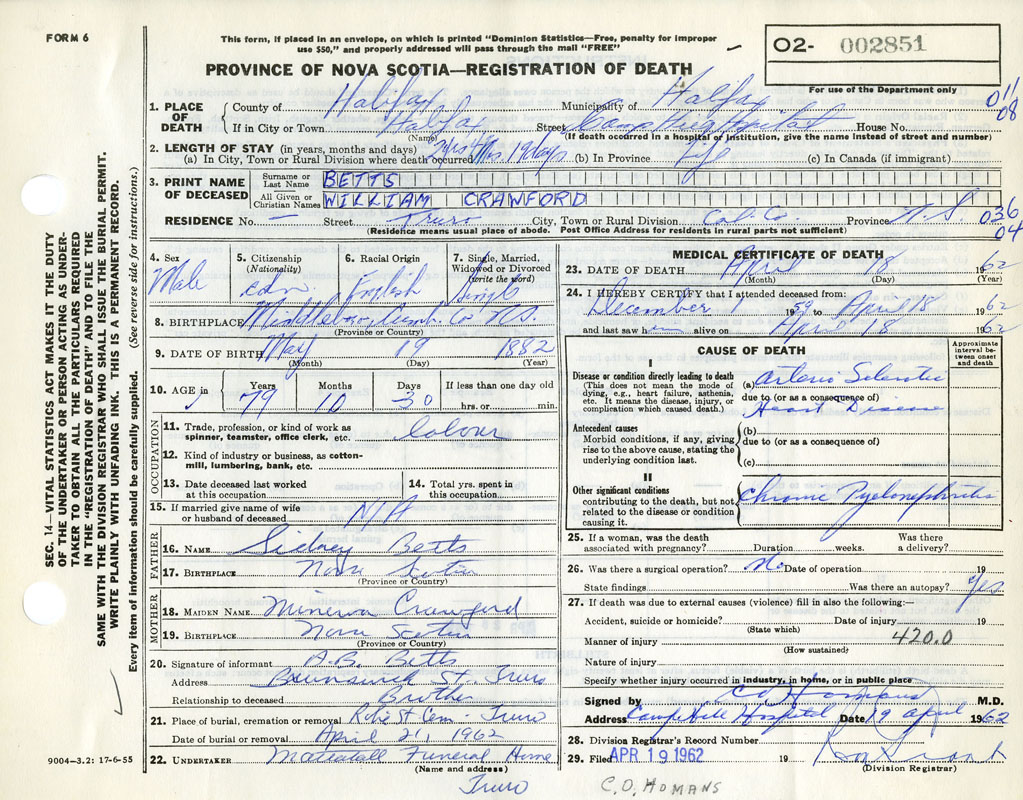 FORM 6
This form, if placed in an envelope, on which is printed "Dominion Statistics—Free, penalty for improper
use $50," and properly addressed will pass through the mail "FREE"
O2- 002851
PROVINCE OF NOVA SCOTIA—REGISTRATION OF DEATH
For use of the Department only
1. PLACE OF DEATH
County of Halifax Municipality of Halifax 011
If in City or Town Halifax Street Camp Hill Hospital House No. 08
(Name) (If death occurred in a hospital or institution, give the name instead of street and number)
2. LENGTH OF STAY (in years, months and days)
(a) In City, Town or Rural Division where death occurred 2 yrs 4 Mos 19 days (b) In Province Life (c) In Canada (if immigrant)
3. PRINT NAME OF DECEASED
Surname or Last Name BETTS
All Given or Christian Names WILLIAM CRAWFORD
RESIDENCE No. — Street Truro City, Town or Rural Division Col. Co. Province N.S. 036
04
(Residence means usual place of abode. Post Office Address for residents in rural parts not sufficient)
4. Sex Male
5. Citizenship (Nationality) Cdn.
6. Racial Origin English
7. Single, Married, Widowed or Divorced (write the word) Single
8. BIRTHPLACE Middleboro, Cumb. Co N.S.
(Province or Country)
9. DATE OF BIRTH May 19 1882
(Month) (Day) (Year)
10. AGE in Years 79 Months 10 Days 30 If less than one day old
hrs. or min.
OCCUPATION
11. Trade, profession, or kind of work as spinner, teamster, office clerk, etc. Labour
12. Kind of industry or business, as cotton-mill, lumbering, bank, etc.
13. Date deceased last worked at this occupation
14. Total yrs. spent in this occupation
15. If married give name of wife or husband of deceased N/A
FATHER
16. NAME Sidney Betts
17. BIRTHPLACE Nova Scotia
(Province or Country)
MOTHER
18. MAIDEN NAME Minerva Crawford
19. BIRTHPLACE Nova Scotia
(Province or Country)
20. Signature of informant A.B. Betts
Address St. Truro
Relationship to deceased Brother
21. Place of burial, cremation or removal Robie St Cem - Truro
Date of burial or removal April 21, 1962
22. UNDERTAKER Mattatall Funeral Home
(Name and address)
Truro
9004—3.2: 17-6-55
MEDICAL CERTIFICATE OF DEATH
23. DATE OF DEATH April 18 1962
(Month) (Day) (Year)
24. I HEREBY CERTIFY that I attended deceased from:
December 1 1959 to April 18 1962
and last saw him alive on April 18 1962
CAUSE OF DEATH
Approximate interval between onset and death
I
Disease or condition directly leading to death
(This does not mean the mode of dying, e.g., heart failure, asthenia, etc. It means the disease, injury, or complication which caused death.)
(a) Arterio Sclerotic
due to (or as a consequence of)
Heart Disease
Antecedent causes
Morbid conditions, if any, giving rise to the above cause, stating the underlying condition last.
(b)
due to (or as a consequence of)
(c)
II
Other significant conditions
contributing to the death, but not related to the disease or condition causing it.
Chronic Pyelonephritis
25. If a woman, was the death associated with pregnancy? Duration weeks. Was there a delivery?
26. Was there a surgical operation? No Date of operation 19
State findings Was there an autopsy? Yes
27. If death was due to external causes (violence) fill in also the following:—
Accident, suicide or homicide? Date of injury 19
(State which)
Manner of injury 420.0
(How sustained)
Nature of injury
Specify whether injury occurred in industry, in home, or in public place
Signed by C O Homans M.D.
Address Camp Hill Hospital Date 19 April 1962
28. Division Registrar's Record Number
29. Filed APR 19 1962
(Division Registrar)
C.O. HOMANS
SEC. 14—VITAL STATISTICS ACT MAKES IT THE DUTY
OF THE UNDERTAKER OR PERSON ACTING AS UNDER-
TAKER TO OBTAIN ALL THE PARTICULARS REQUIRED
IN THE "REGISTRATION OF DEATH" AND TO FILE THE
SAME WITH THE DIVISION REGISTRAR WHO SHALL ISSUE THE BURIAL PERMIT.
WRITE PLAINLY WITH UNFADING INK. THIS IS A PERMANENT RECORD.
Every item of information should be carefully supplied. (See reverse side for instructions.)